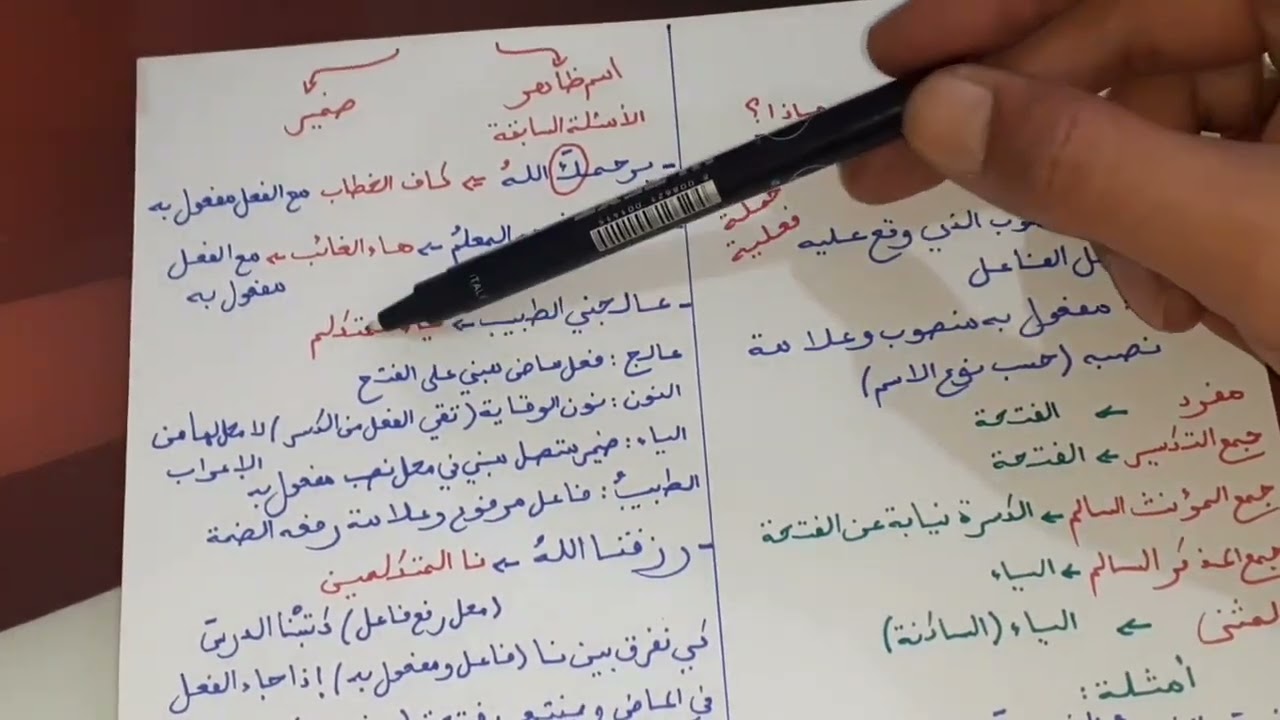 ماذا؟
جملة
فعلية
الذي وقع عليه
الفاعل
مفعول به منصوب وعلامة
نصبه (حسب نوع الاسم)
مفرد ← الفتحة
جمع التكسير ← الفتحة
جمع المؤنث السالم ← الكسرة نيابة عن الفتحة
جمع المذكر السالم ← الياء
المثنى ← الياء (الساكنة)
أمثلة :
اسم ظاهر
ضمير
الأسئلة السابقة
- يرحمكَ اللهُ ⇐ كاف الخطاب مع الفعل مفعول به
المعلمُ ← هاء الغائب ← مع الفعل
مفعول به
- عالجني الطبيب ← ياء المتكلم
عالج : فعل ماض مبني على الفتح
النون : نون الوقاية (تقي الفعل من الكسر) لا محل لها من
الإعراب
الياء : ضمير متصل مبني في محل نصب مفعول به
الطبيبُ : فاعل مرفوع وعلامة رفعه الضمة
- رزقنا اللهُ ← نا المتكلمين
(محل رفع فاعل) كتبْنا الدرسَ
كي نفرق بين نا (فاعل ومفعول به) إذا جاء الفعل
في الماضي و